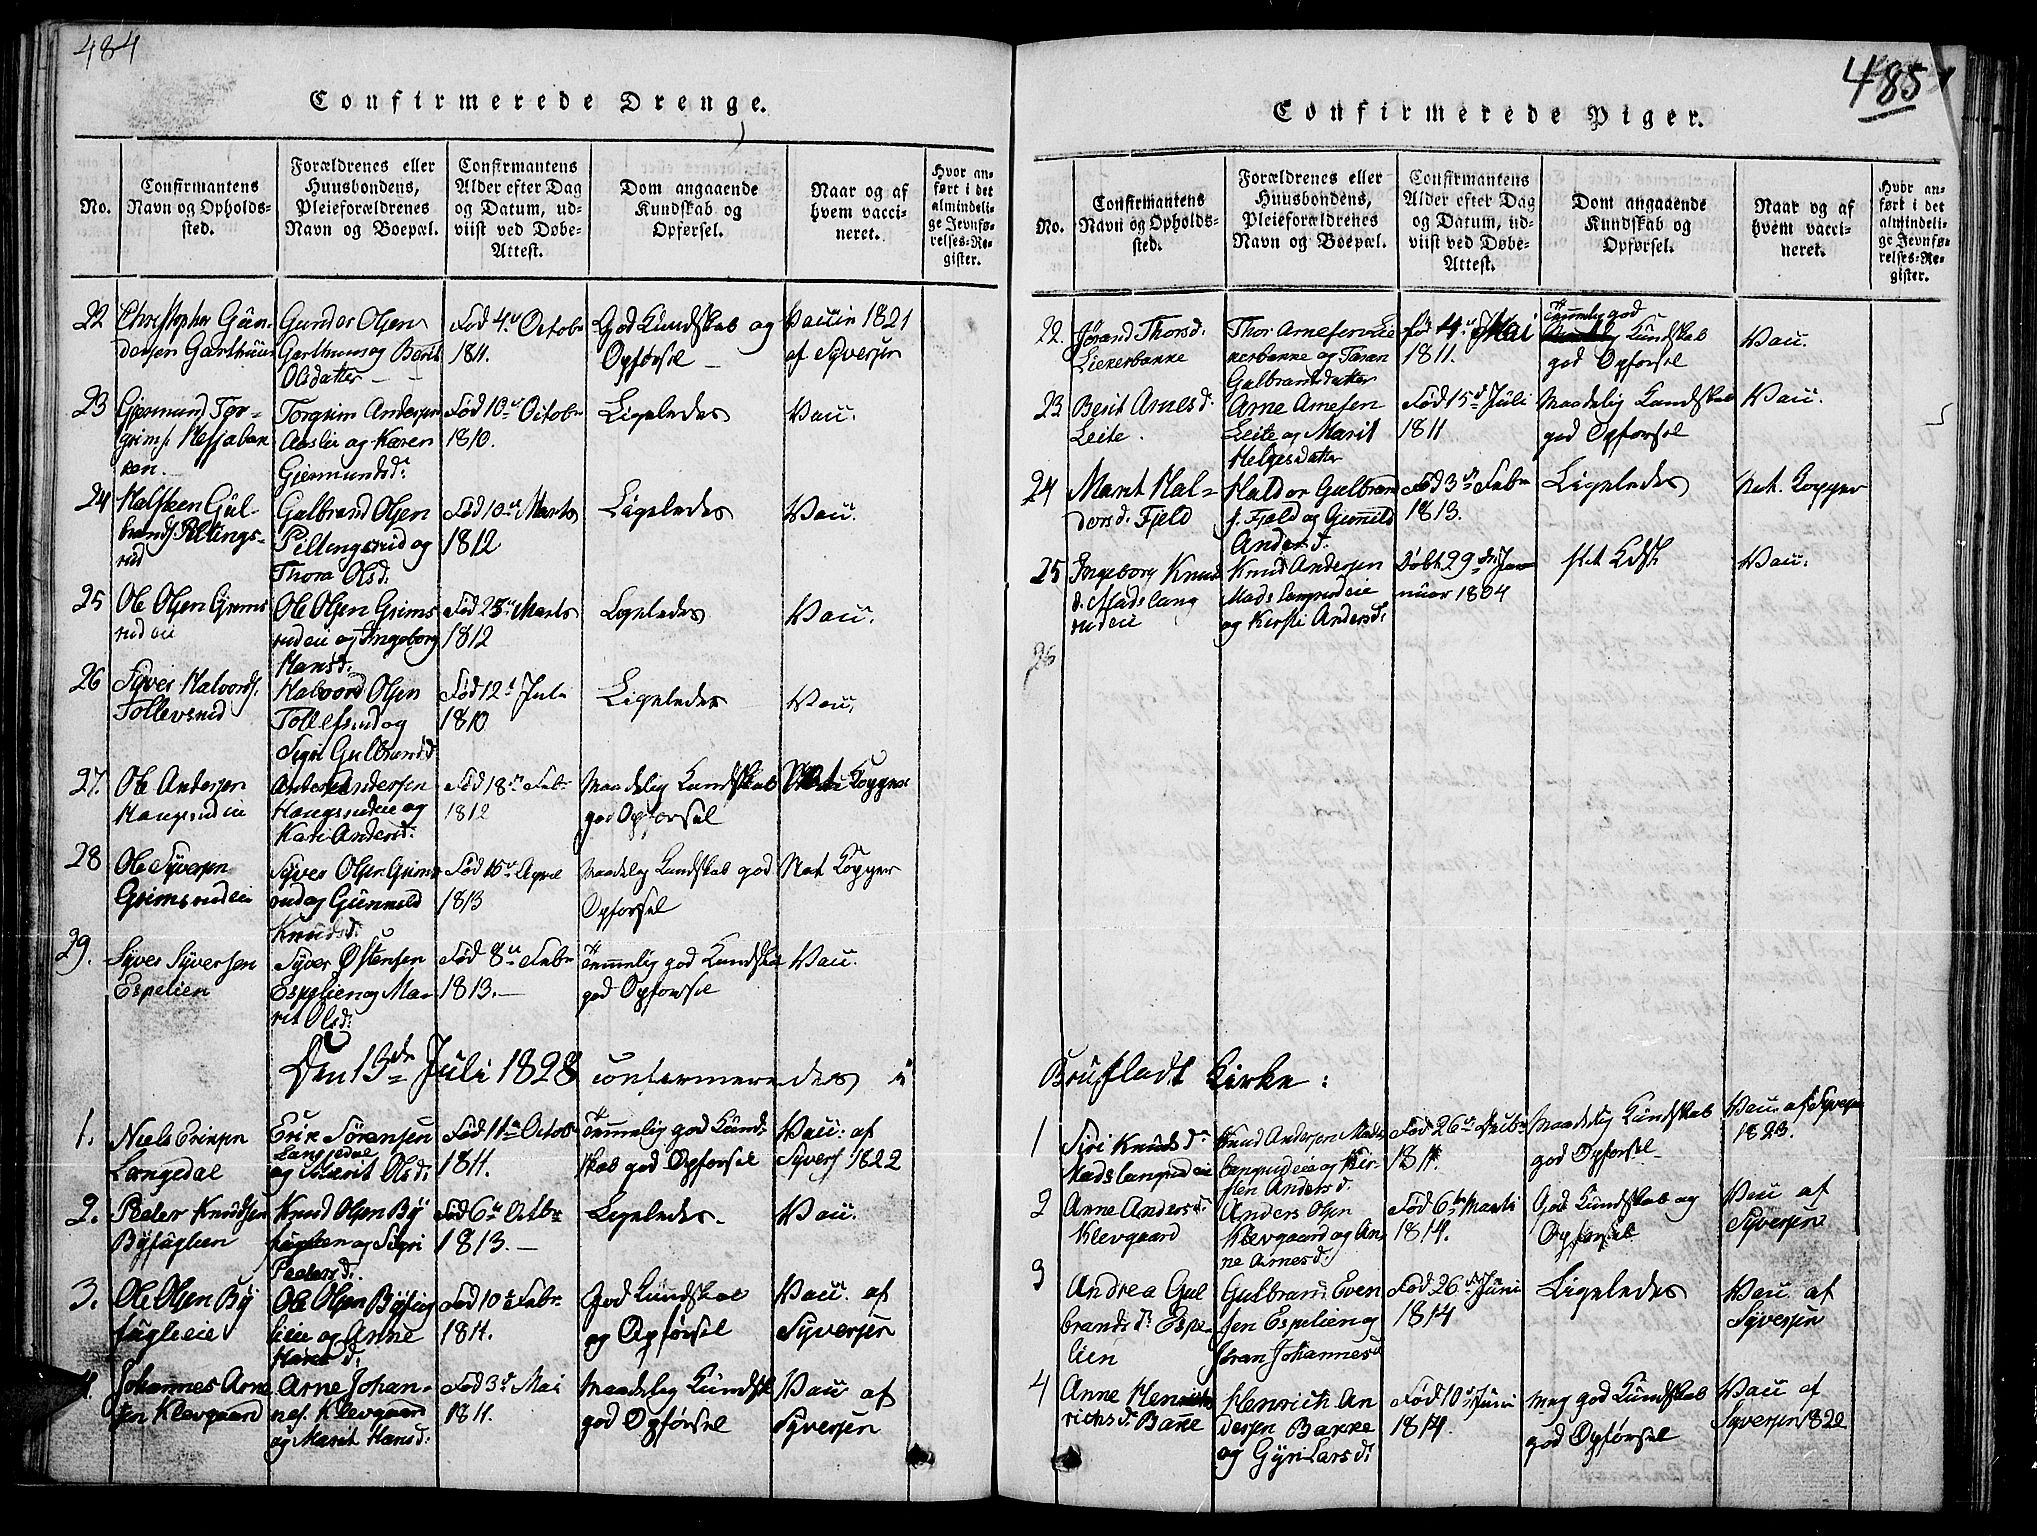 484
Confirmerede Drenge.
No.
Confirmantens
Navn og Opholds-
sted.
Forældrenes eller
Huusbondens,
Pleieforældrenes
Navn og Boepæl.
Confirmantens
Alder efter Dag
og Datum, ud-
viist ved Døbe-
Attest.
Dom angaaende
Kundskab og
Opførsel.
Naar og af
hvem vacci-
neret.
Hvor an-
ført i det
almindeli-
ge Jevnfø-
relses-Re-
gister.
22
Christopher Gun-
dersen Garthuus
Gunder Olsen
Garthuus og Barit
Olsdatter
Fød 4de Octobr
1811.
God Kundskab og
Opførsel
Vaccin 1821
af Syversen
23
Giermund Tor-
grims. Hessjabac
ken.
Torgrim Andersen
Aaslie og Karen
Giermundsd:
Fød 10de Octobr
1810.
Ligeledes
Vacc:
24
Halsteen Gul-
brands. Pillings-
rud
Gulbrand Olsen
Pillengsrud og
Thora Olsd:
Fød 10de Marts
1812
Ligeledes
Vacc.
25
Ole Olsen Grims
rudeie
Ole Olsen Grims
rudeie og Ingeborg
Hansd:
Fød 25de Marts
1812
Ligeledes
Vacc.
26
Syver Halvords.
Tollevsrud
Halvord Olsen
Tollefsrud og
Sigri Gulbrandsd
Fød 12te Jul
1810
Ligeledes
Vacc.
27.
Ole Andersen
Haugsrudeie
Anders Andersen
Haugsrudeie og
Kari Andersd:
Fød 18de Febr
1812
Maadelig Kundskab
god Opførsel
Nat. Kopper
28
Ole Syversen
Grimsrudeie
Syver Olsen Grims
rud og Gunnild
Knudsd:
Fød 15de April
1813
Maadelig Kundskab god
Opførsel
Nat Kopper
29.
Syver Syversen
Espelien
Syver Østensen
Espelien og Ma-
rit Olsd:
Fød 8de Febr
1813.
Temmelig god Kundska
god Opførsel
Vacc.
Den 13de Juli 1828 confirmeredes i
1.
Niels Ericsen
Langedal
Erik Sørensen
Langedal
og Marit Olsd:
Fød 11te Octob
1811.
Temmelig god Kund-
skab god Opførsel
Vacc: af
Syvers 1822
2.
Peder Knudsen
Byfuglien
Knud Olsen By
fuglien og Sigri
Pedersd:
Fød 6te Octbr
1813.
Ligeledes.
Vacc.
3.
Ole Olsen By
fuglieie
Ole Olsen Byfug
lieie og Anne
Hansd:
Fød 10de Febr.
1811.
God Kundskab
og Opførsel
Vacc. af
Syversen
4.
Johannes Arne
sen Klevgaard
Arne Johan-
nes. Klevgaard
og Marit Hansd:
Fød 3de Mai
1811.
Maadelig Kundsk
god Opførsel
Vacc af
Syversen
485
Confirmerede Piger.
No.
Confirmantens
Navn og Opholds-
sted.
Forældrenes eller
Huusbondens,
Pleieforældrenes
Navn og Boepæl.
Confirmantens
Alder efter Dag
og Datum, ud-
viist ved Døbe-
Attest.
Dom angaaende
Kundskab og
Opførsel.
Naar og af
hvem vacci-
neret.
Hvor an-
ført i det
almindeli-
ge Jevnfø-
relses-Re-
gister.
22.
Jørand Thorsd.
Liekerbakke
Thor Arnesen Lie
kerbakke og Jøran
Gulbrandsdatter
fød 4de Mai
1811.
Temmelig god
Kundskab
god Opførsel
Vacc.
23
Berit Arnesd.
Leite.
Arne Arnesen
Leite og Marit
Helgesdatter
Fød 15de Juli
1811
Maadelig Kundskab
god Opførsel
Vacc.
24
Marit Hal-
dorsd. Fjeld
Haldor Gulbran
s. Fjeld og Gunnild
Andersd.
Fød 3de Febr
1813.
Ligeledes
Nat. Kopper
25
Ingeborg Knud
sd. Madslang
rudeie
Knud Andersen
Madslangrudeie
og Kirsti Andersd:
Døbt 29de Ja
nuar 1804
slet Kdsk
Vacc.
26
Brufladt Kirke:
1
Siri Knudsdr
Madslangrudeie
Knud Andersen Mads
langrudeie og Kir-
sten Andersd.
Fød 26de
1811.
Maadelig Kundskab
god Opførsel
Vacc. af Syversen
1823.
2
Anne Andersdr
Klevgaard
Anders Olsen
Klevgaard og An
ne Arnesd:
Fød 6te Marti
1814.
God Kundskab og
Opførsel
Vacc af
Syversen
3
Andrea Gul
brandsdr Espe-
lien
Gulbrand Even
sen Espelien og
Jøran Johannesd
Fød 26de Juni
1814
Ligeledes
Vacc. af
Syversen
4
Anne Hen
richsd. Bakke
Henrich An
dersen Bakke
og Gyri Larsd:
Fød 10de Juni
1814.
Meg god Kundskab
god Opførsel
Vacc af
Syversen 1822